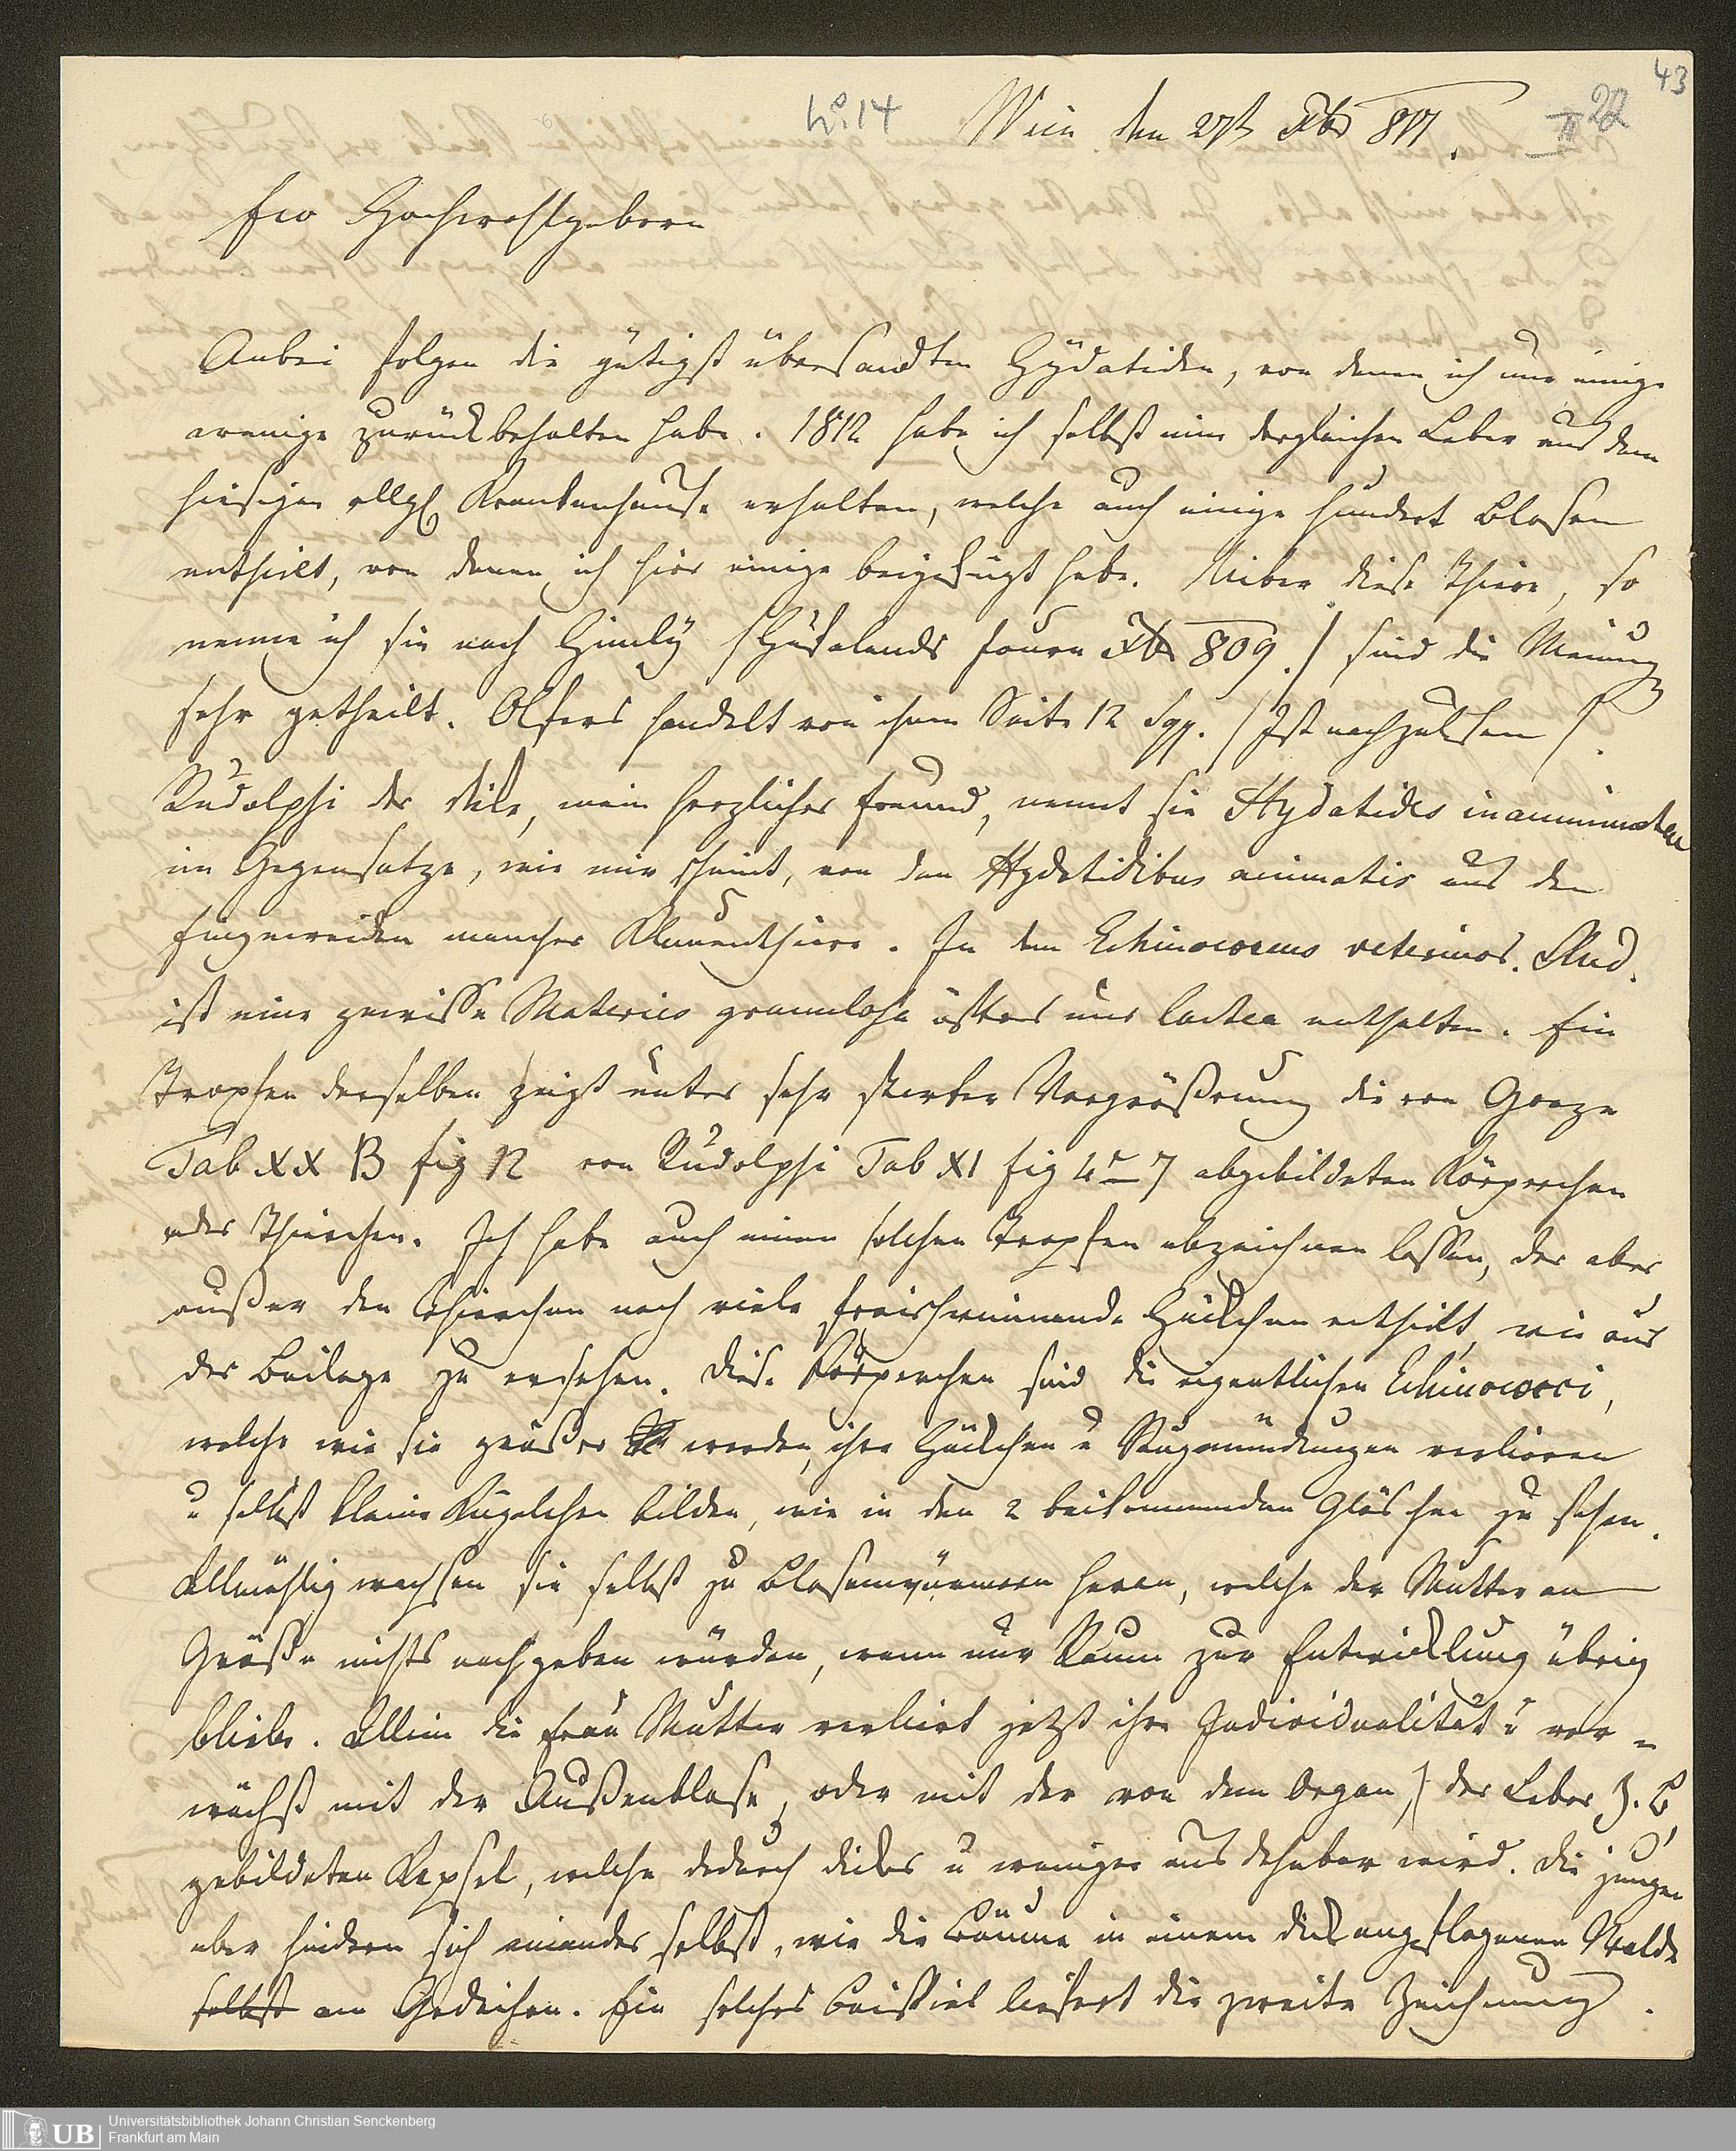 43
No 14 Wien den 27st Xbr 817. II 22
Ew Hochwohlgeborn
Anbei folgen die gütigst übersandten Hydatiden, von denen ich nur einige
wenige zurückbehalten habe. 1812 habe ich selbst eine dergleichen Leber aus dem
hiesigen allg Krankenhause erhalten, welche auch einige hundert Blasen
enthielt, von denen ich hier einige beigefügt habe. Ueber diese Thiere, so
nenne ich sie nach Himly /Hufelands Journ Xbr 809./ sind die Meinung
sehr getheilt. Olfers handelt von ihnen Seite 12 sqq. /Ist nachzulesen/.
Rudolphi der liebe, mein herzlicher Freund, nennt sie Hydatides inanimatae
im Gegensatze, wie mir scheint, von den Hydatidibus animatis aus den
Eingeweiden mancher Klauenthiere. In dem Echinococcus veterinor. Rud.
ist eine gewisse Materies granulosa öfters nur lactea enthalten. Ein
Tropfen derselben zeigt unter sehr starker Vergrößerung die von Goeze
Tab XX B fig 12 von Rudolphi Tab XI fig 4–7 abgebildeten Körperchen
oder Thierchen. Ich habe auch einen solchen Tropfen abzeichnen lassen, der aber
außer den Thierchen noch viele freischwimmende Häckchen enthielt, wie aus
der Beilage zu ersehen. Diese Körperchen sind die eigentlichen Echinococci,
welche wie sie größer werden, ihre Häckchen u Saugmündungen verlieren
u selbst kleine Kügelchen bilden, wie in den 2 beikommenden Gläschen zu sehen.
Allmählig wachsen sie selbst zu Blasenwürmern heran, welche der Mutter an
Größe nichts nachgeben würden, wenn nur Raum zur Entwicklung übrig
bliebe. Allein die Frau Mutter verliert jetzt ihre Individualität u ver-
wächst mit der Außenblase, oder mit der von dem Organ / der Leber z. B
gebildeten Kapsel, welche dadurch dicker u weniger ausdehnbar wird. Die jungen
aber hindern sich einander selbst, wie die Bäume in einem dick angeflogenen Walde
selbst am Gedeihen. Ein solches Beispiel liefert die zweite Zeichnung.
UB Universitätsbibliothek Johann Christian Senckenberg
Frankfurt am Main